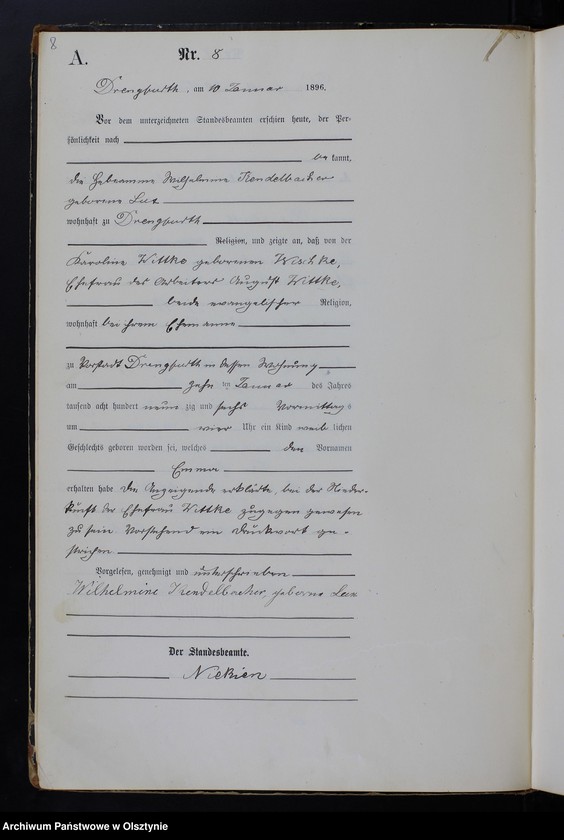 8
A. Nr. 8
Drengfurth, am 10 Januar 1896.
Vor dem unterzeichneten Standesbeamten erschien heute, der Per-
sönlichkeit nach
be kannt,
die Hebeamme Wilhelmine Kendelbacher
geborene
wohnhaft zu Drengfurth
Religion, und zeigte an, daß von der
Karoline Wittke geborenen
Ehefrau des Arbeiters August Wittke,
beide evangelischer Religion,
wohnhaft bei ihrem Ehemanne
zu Vorstadt Drengfurth in dessen Wohnung
am zehn ten Januar des Jahres
tausend acht hundert neun zig und sechs Vormittags
um vier Uhr ein Kind weib lichen
Geschlechts geboren worden sei, welches den Vornamen
Emma
erhalten habe Die Anzeigende erklärte, bei der Nieder-
kunft der Ehefrau Wittke zugegen gewesen
zu sein. Vorstehend ein Druckwort ge-
strichen.
Vorgelesen, genehmigt und unterschrieben
Wilhelmine Kendelbacher, geborne
Der Standesbeamte.
Archiwum Państwowe w Olsztynie